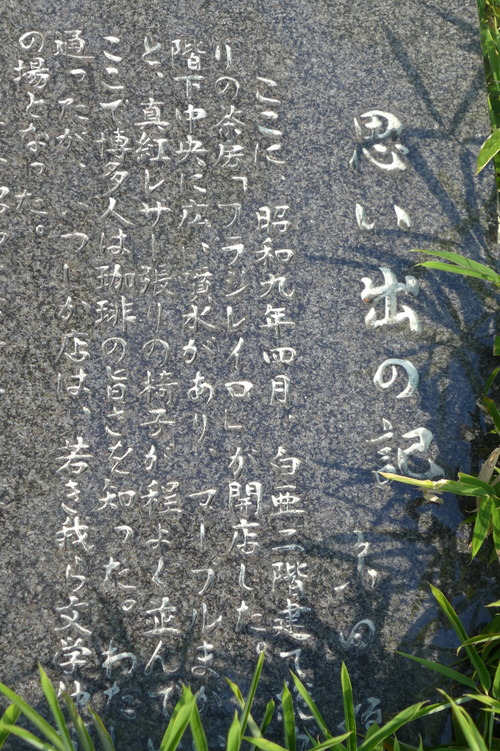 思い出の記
ここに、昭和九年四月、白亜二階建て
りの茶房「ブラジレイロ」が開店した。
階下中央に広い噴水があり、マーブルま
と、真紅レザー張りの椅子が程よく並んで
ここで博多人は珈琲の旨さを知った。わた
通ったが、いつしか店は、若き我ら文学
の場となった。